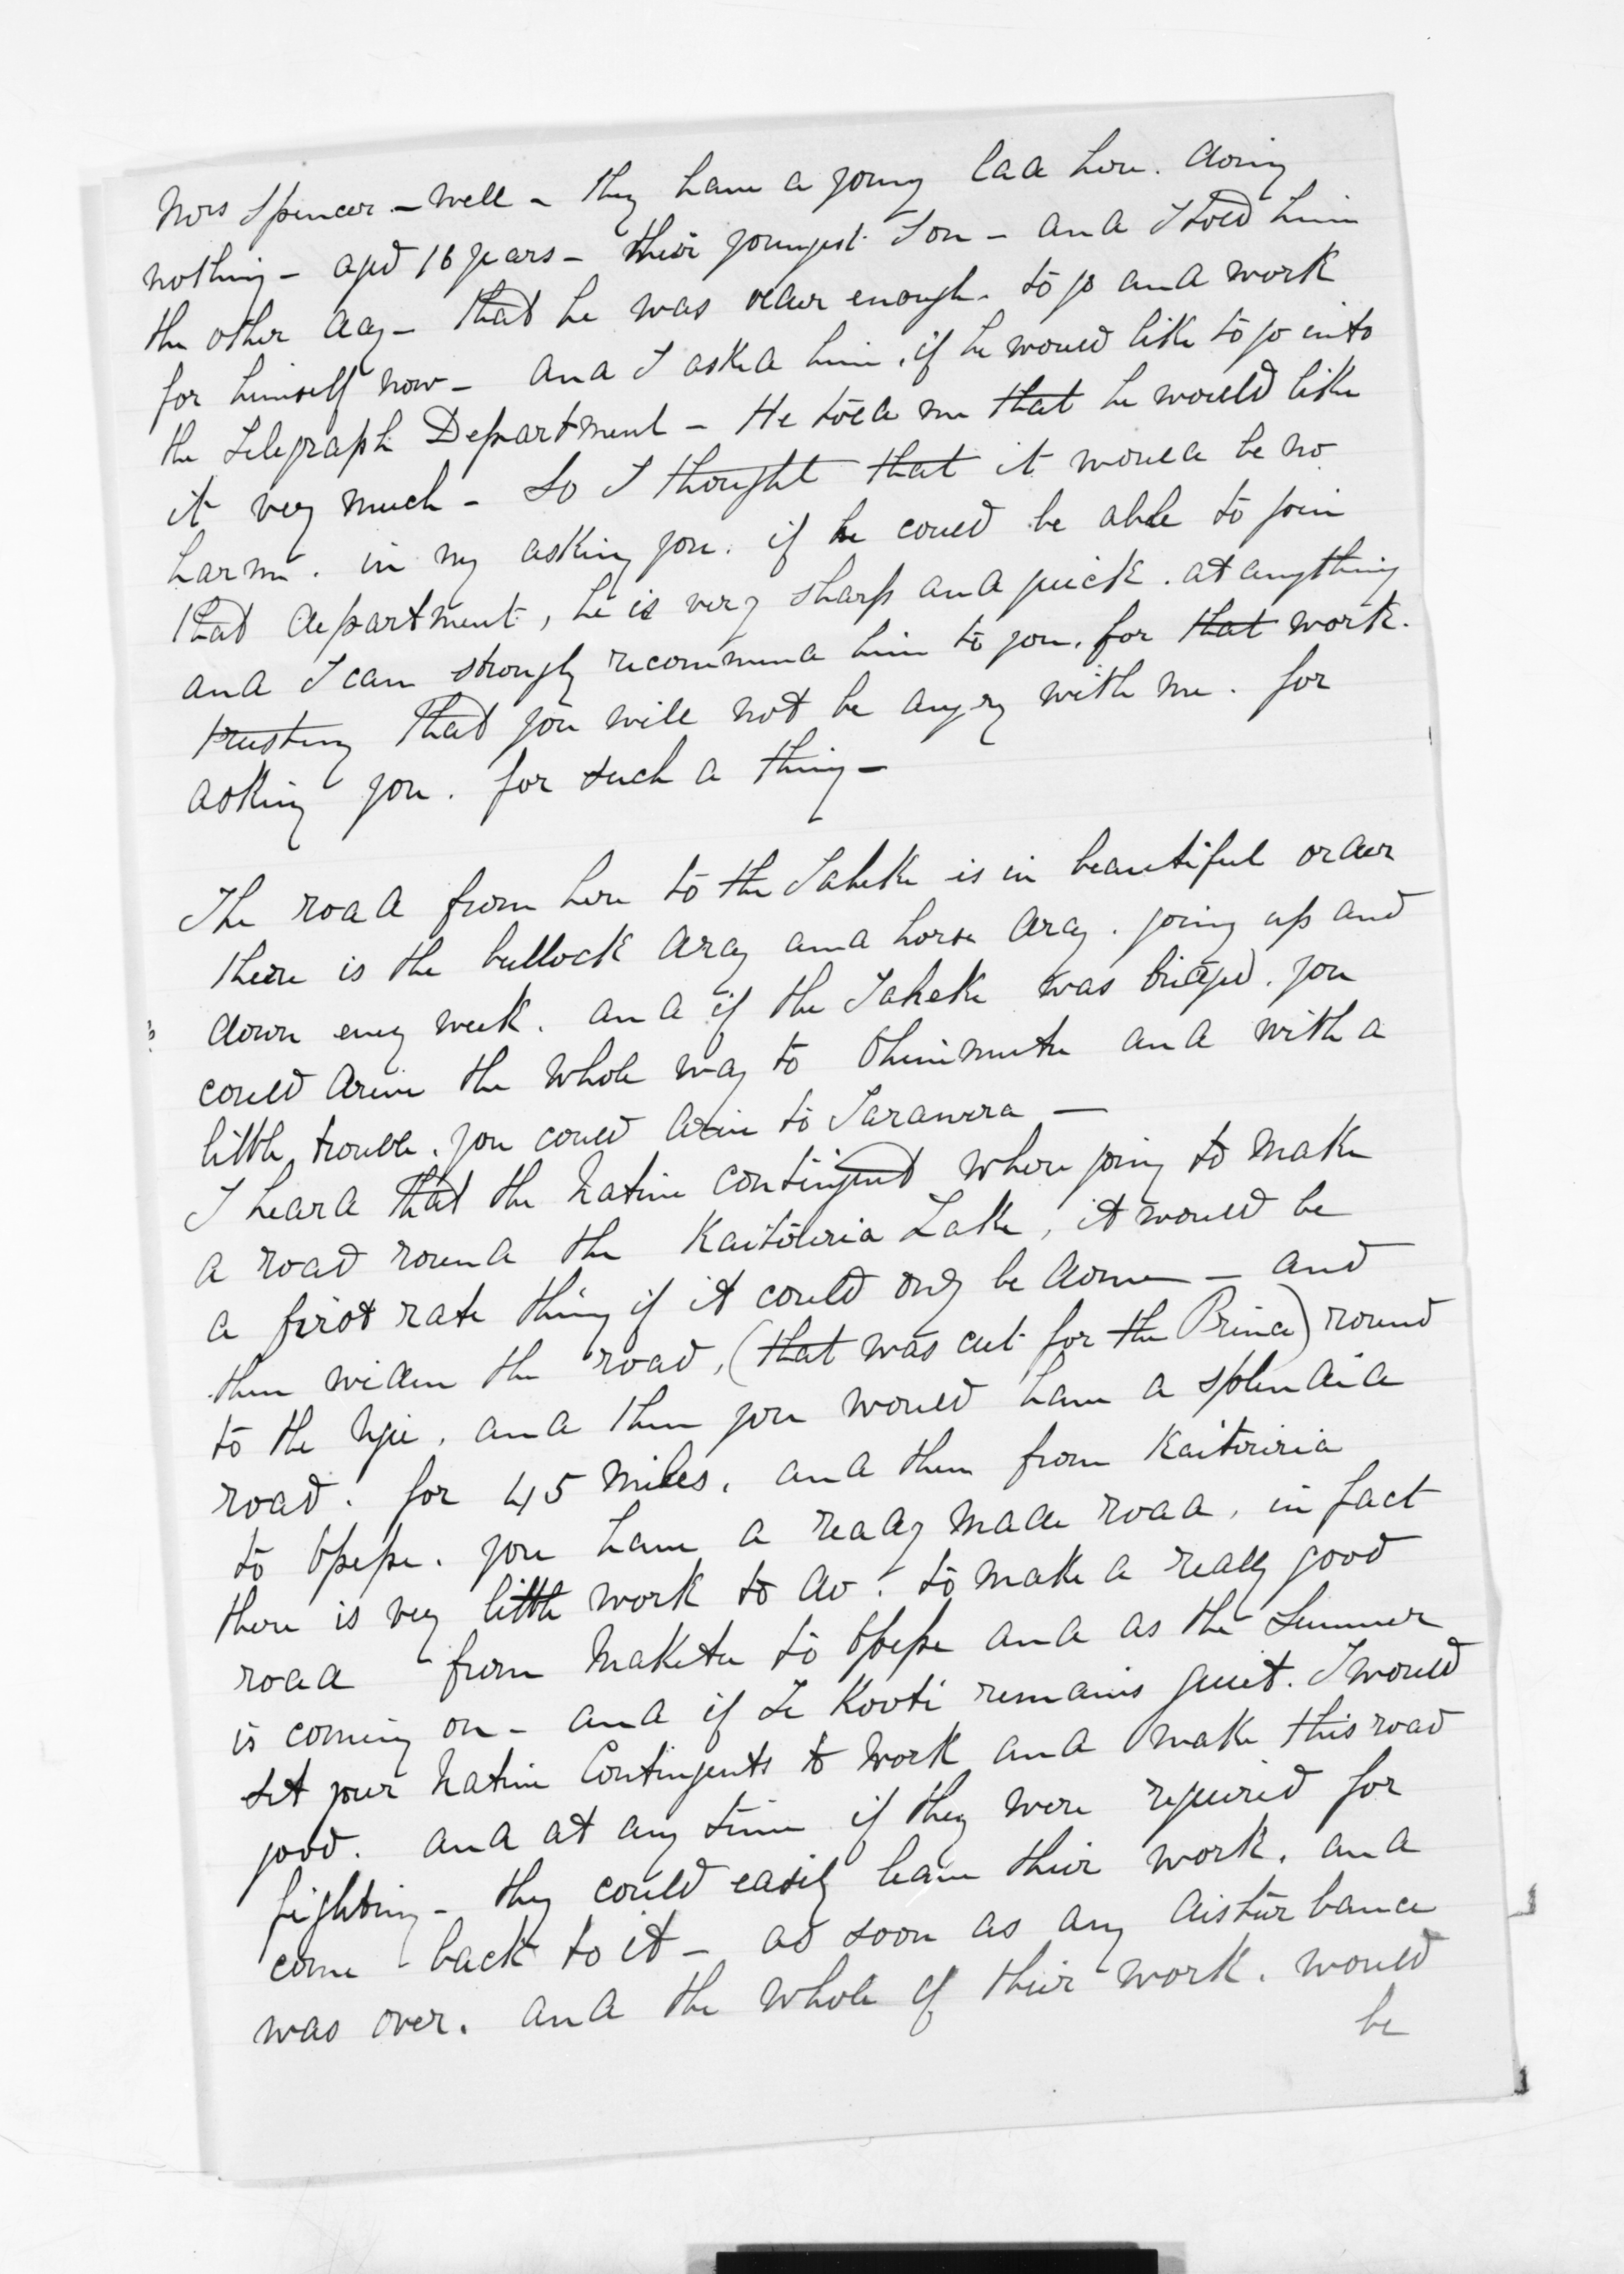 Mrs Spencer - well - they have a young lad here. doing
nothing - aged 16 years - their youngest Son - and I told him
the other day - that he was old enough. to go and work
for himself now - and I asked him, if he would like to go into
the Telegraph Department - He told me that he would like
it very much - So I thought that it would be no
harm. in my asking you. if he could be able to join
that department, he is very sharp and quick. at anything
and I can strongly recommend him to you. for that work.
trusting that you will not be angry with me. for
asking you. for such a thing -
The road from here to the Taheke is in beautiful order
there is the bullock dray and horse dray. going up and
down every week. and if the Taheke was bridged. you
could drive the whole way to Ohinimutu and with a
little trouble. you could drive to Tarawera -
I heard that the Native contingent where going to make
a road round the Kaitiriria Lake, it would be
a first rate thing if it could only be done - and
then widen the road, (that was cut for the Prince) round
to the Ngie, and then you would have a splendid
road. for 45 miles. and then from Kaitiriria
to Opepe. you have a ready made road, in fact
there is very little work to do. to make a really good
road from Maketu to Opepe and as the Summer
is coming on - and if Te Kooti remains quiet. I would
set your Native Contingents to work and make this road
good. and at any time if they were required for
fighting - they could easily leave their work. and
come back to it - as soon as any disturbance
was over. and the whole of their work. would
be